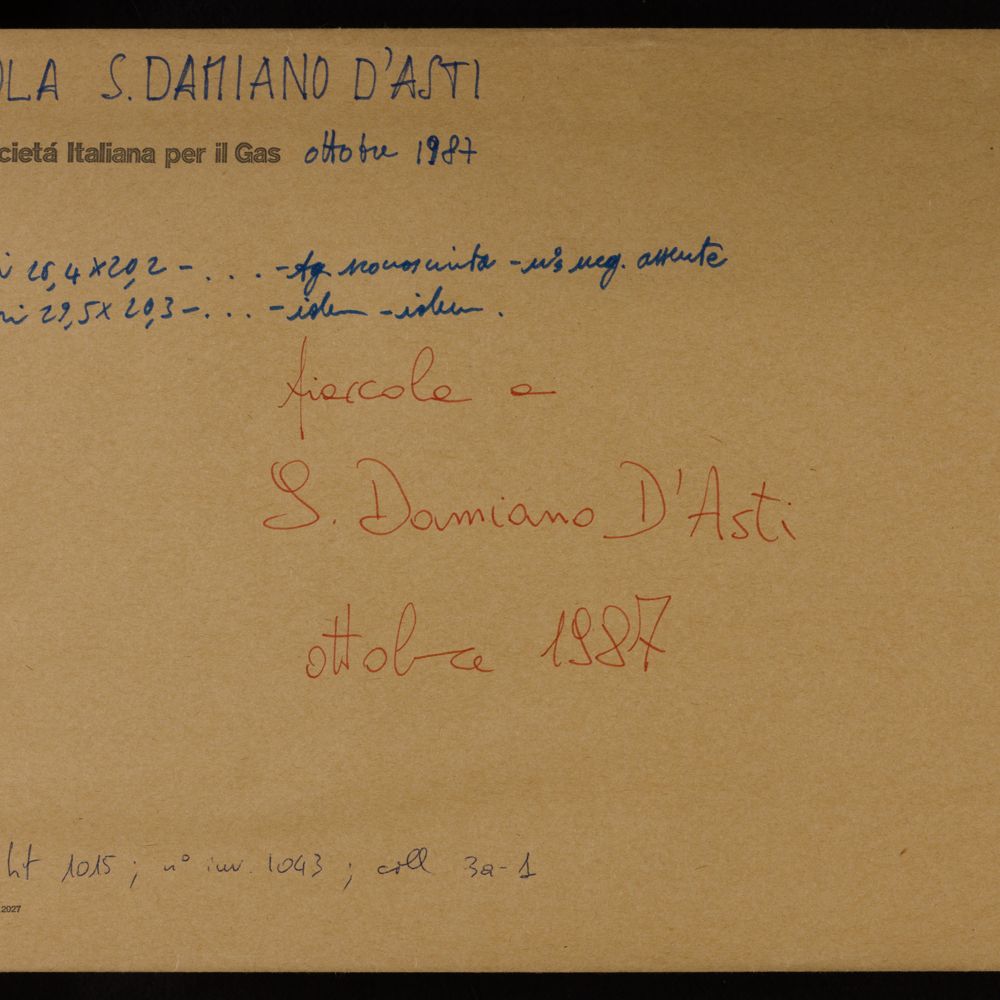 OLA S. DAMIANO D'ASTI
cietá Italiana per il Gas ottobre 1987
i 26,4x20,2 - . . . - Ag. sconosciuta - n°s neg. assente
ni 29,5x20,3 - . . . - idem - idem.
fiaccola a
S. Damiano D'Asti
ottobre 1987
ht 1015 ; n° inv. 1043 ; coll 3a-1
2027